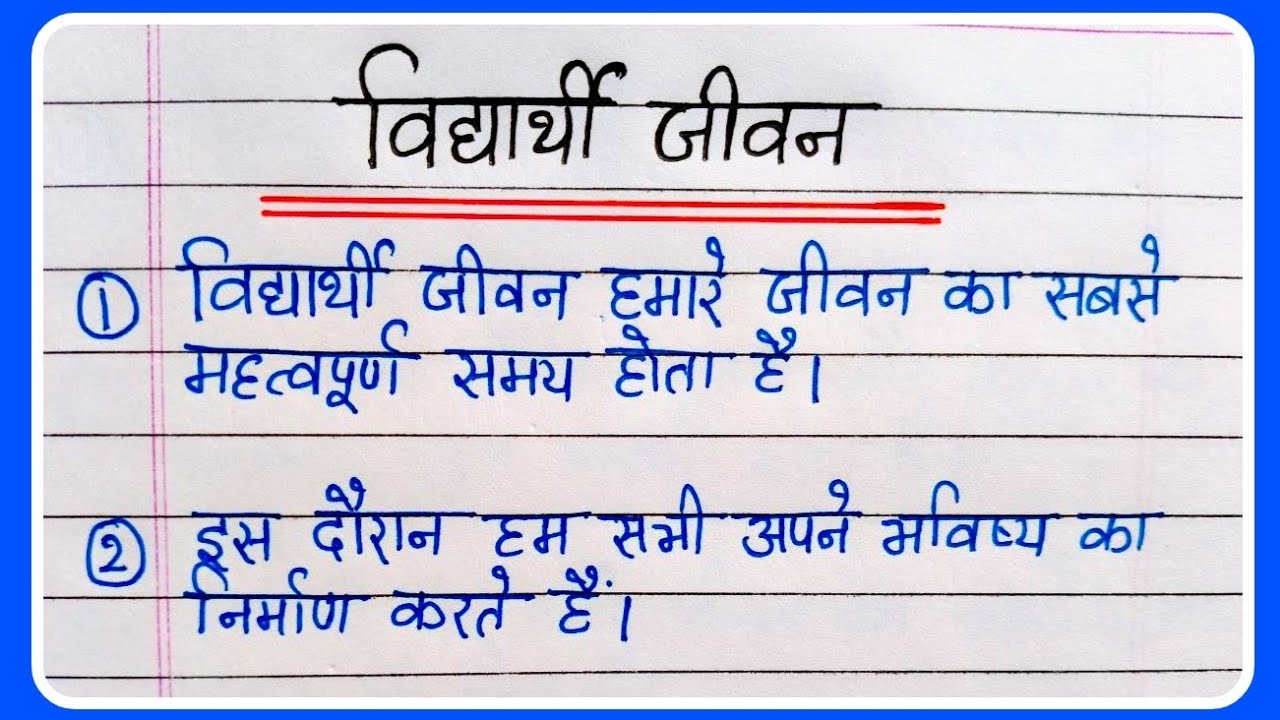 विद्यार्थी जीवन
① विद्यार्थी जीवन हमारे जीवन का सबसे
महत्वपूर्ण समय होता है।
② इस दौरान हम सभी अपने भविष्य का
निर्माण करते हैं।